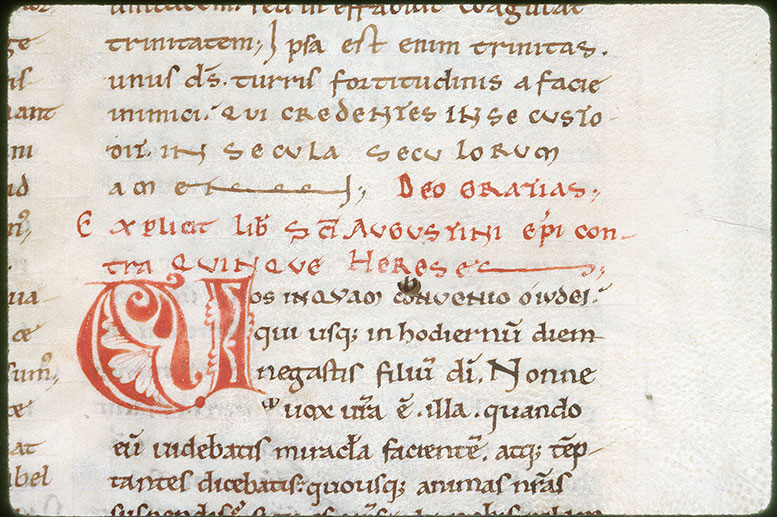 unitatem. sed ineffabilit coagulat
trinitatem; Ipsa est enim trinitas.
unus ds̄. turris fortitudinis a facie
inimici. QUI CREDENTES IN SE CUSTO-
DIT. IN SECULA SECULORUM
AMEN; DEO GRATIAS;
EXPLICIT LIB SC̄I AUGUSTINI EP̄I CON-
TRA QUINQUE HERESES;
UOS INQUAM CONVENIO O IUDEI.
qui usq; in hodiernū diem
negastis filiū dī. Nonne
uox ur̄a ē. illa. quando
eū uidebatis miracl̄a facientē. atq; tēp-
tantes dicebatis: quousq; animas nr̄as
ge
is
uant
ni
id
ua
ce
sum;
ce
at
ibel